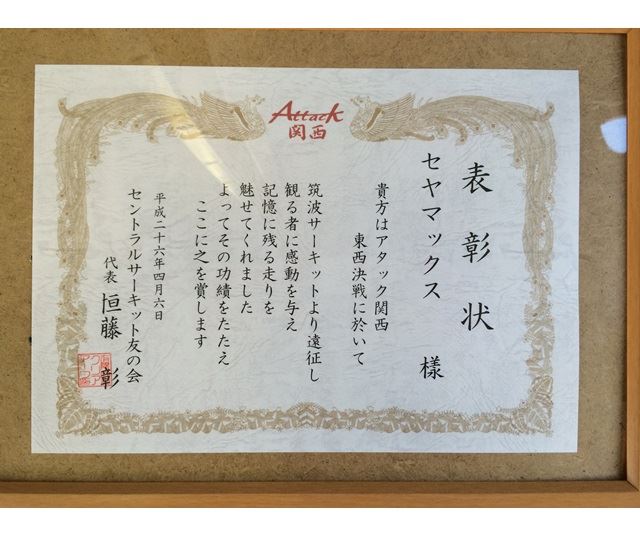 Attack
関西
表彰状
セヤマックス 様
貴方はアタック関西
東西決戦に於いて
筑波サーキットより遠征し
観る者に感動を与え
記憶に残る走りを
魅せてくれました
よってその功績をたたえ
ここに之を賞します
平成二十六年四月六日
セントラルサーキット友の会
代表 恒藤 彰